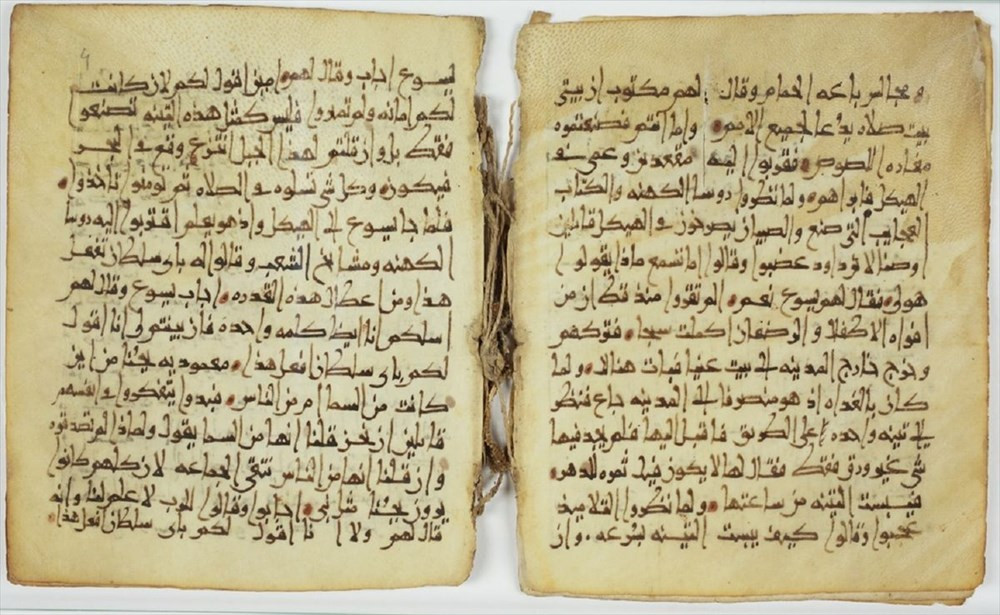 ومجالس باعه الحمام وقال لهم مكتوب ان بيتي
بيت صلاه يدعا لجميع الامم واما انتم فصنعتموه
مغاره اللصوص فتقربوا اليه مقعدين وعمي في
الهيكل فابراهم ولما نظروا روسا الكهنه والكتاب
العجايب التي صنع والصبيان يصرخون في الهيكل قايلين
اوصنا لابن داود غضبوا وقالوا اما تسمع ماذا يقولوا
هولي فقال لهم يسوع نعم الم تقروا منذ قط ان من
افواه الاطفال والرضعان اكملت سبحا فتركهم
وخرج خارج المدينه الى بيت عنيا فبات هنالك ولما
كان بالغداه اذ هو منصرف الى المدينه جاع فنظر
الى تينه واحده على الطريق فاقبل اليها فلم يجد فيها
شي غير ورق فقط فقال لها لا يكون فيك ثمره للدهر
فيبست التينه من ساعتها ولما نظروا التلاميذ
عجبوا وقالوا كيف يبست التينه بسرعه وان
يسوع اجاب وقال لهم امين اقول لكم لان كانت
لكم امانه ولم تمتروا فليس كمثل هذه التينه تصنعوا
فقط بل وان قلتم لهذا الجبل انتزع وقع في البحر
فيكون وكل شي تسلوه في الصلاه ثم تومنوا تاخذوا
فلما جا يسوع الى الهيكل واذ هو يعلم اقتربوا اليه روسا
الكهنه ومشايخ الشعب وقالوا له باي سلطان تفعل
هذا ومن اعطاك هذه القدره اجاب يسوع وقال لهم
اسلكم انا ايضا كلمه واحده فان بينتم لي انا اقول
لكم باي سلطان افعل هذا معموديه يحنا من اين
كانت من السما ام من الناس فبدوا يتفكروا في انفسهم
قايلين ان نحن قلنا انها من السما يقول ولماذا لم تصدقوه
وان قلنا انها من الناس نتقي الجماعه لان كلهم كانوا
يرون يحنا مثل نبي اجابوا وقالوا للرب لا علم لنا وانه
قال لهم ولا انا اقول لكم باي سلطان افعل هذا